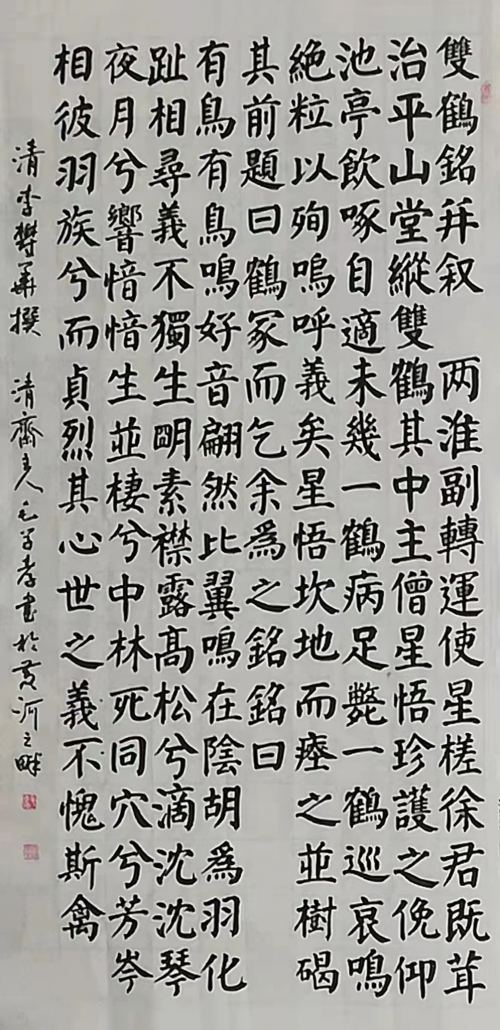 雙鶴銘并叙 两淮副轉運使星槎徐君既茸
治平山堂縱雙鶴其中主僧星悟珍護之俛仰
池亭飲啄自適未幾一鶴病足斃一鶴巡哀鳴
絶粒以殉嗚呼義矣星悟坎地而瘞之並樹碣
其前題曰鶴冢而乞余為之銘銘曰
有鳥有鳥鳴好音翩然比翼鳴在陰胡為羽化
趾相尋義不獨生明素襟露高松兮滴沈沈琴
夜月兮響愔愔生並棲兮中林死同穴兮芳岑
相彼羽族兮而貞烈其心世之義不愧斯禽
清李攀華撰 清齋主人毛子孝書於黄河之畔